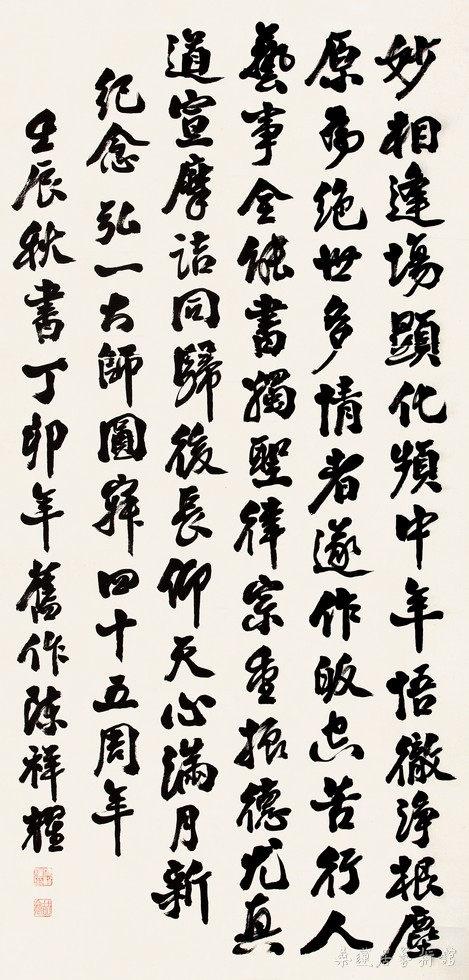 妙相逢場顯化頻中年悟徹淨根塵
原為絕世多情者遂作皈空苦行人
藝事全能書獨聖律宗重振德尤真
道宣摩詰同歸後長仰天心滿月新
紀念弘一大師圓寂四十五周年
壬辰秋書丁卯年舊作陳祥耀
桑蓮居藝術館